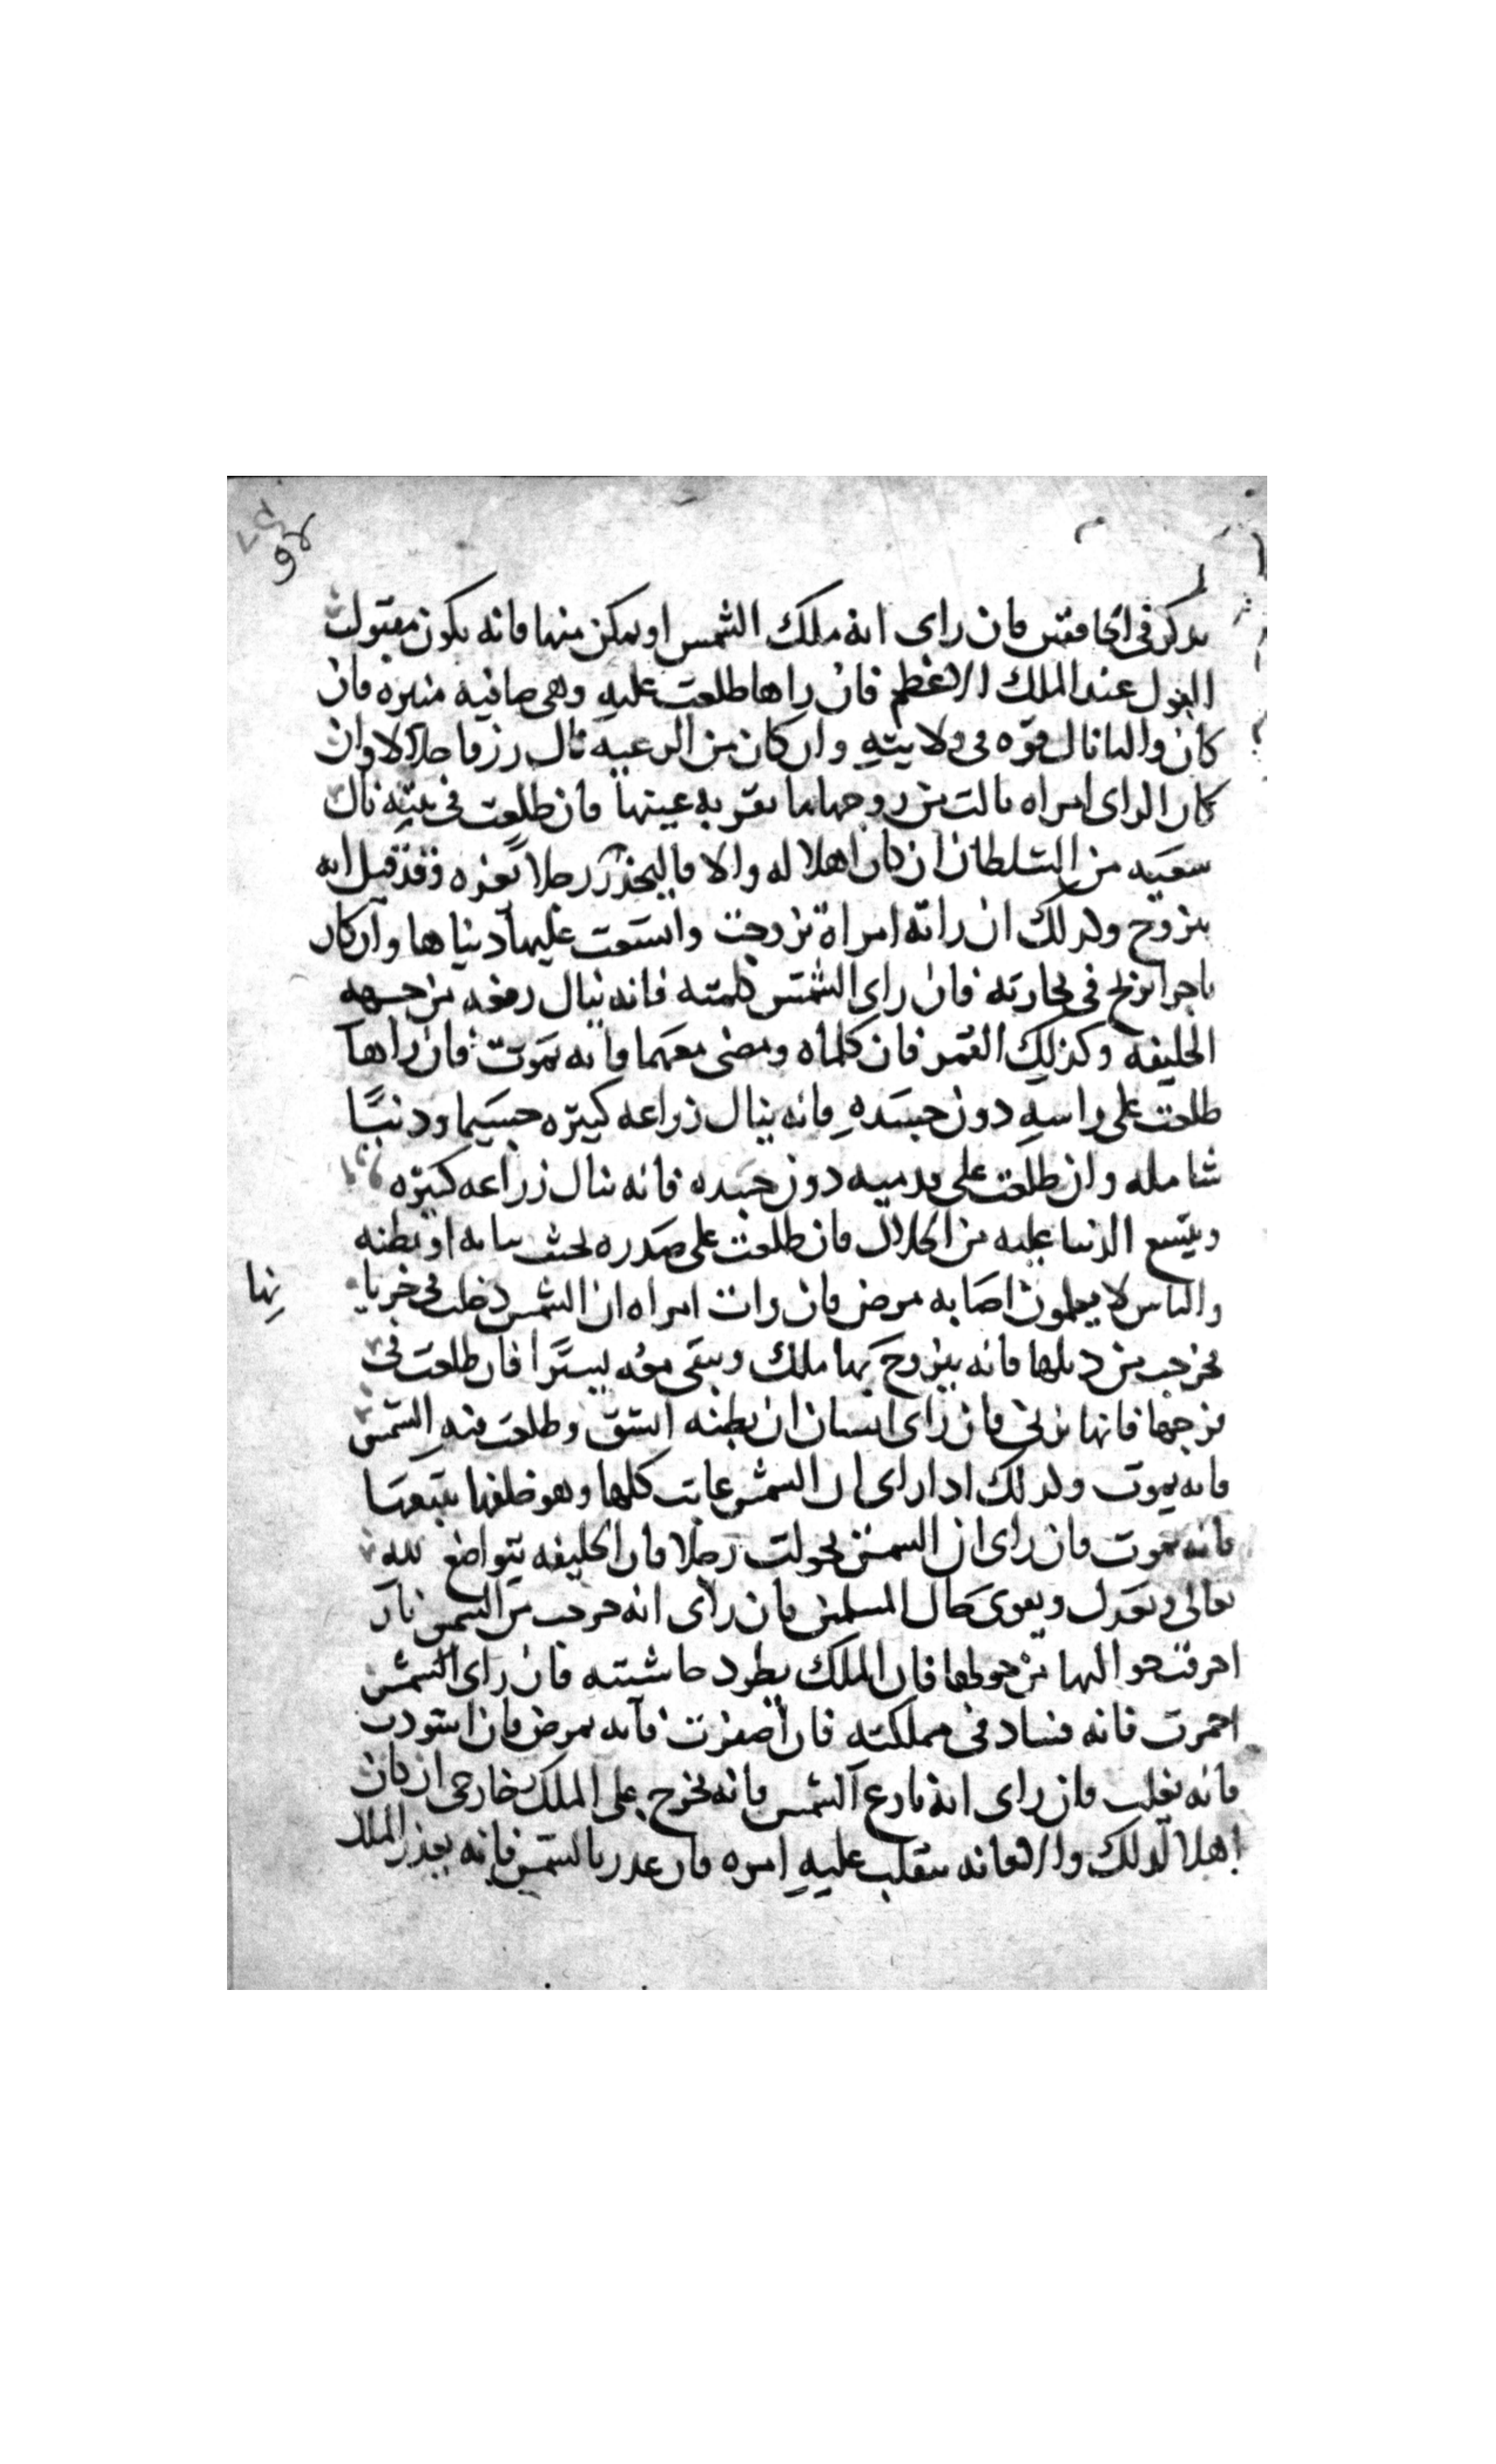 يذكر في الخامس فان راى انه ملك الشمس او تمكن منها فانه يكون مقبول
القول عند الملك الاعظم فان راها طلعت عليه وهي صافيه منيره فان
كان واليا نال قوه في ولايته وان كان من الرعيه نال رزقا حلالا وان
كان الراى امراه نالت من زوجها ما تقر به عينها فان طلعت في بيته نال
سعيه من السلطان ان كان اهلا له والا فاليحذر رجلا يعزه وقد قيل انه
يتزوج وكذلك ان راته امراة تزوجت واتسعت عليها دنياها وان كان
تاجرا ربح في تجارته فان راى الشمس كلمته فانه ينال رفعه من جهه
الخليفه وكذلك القمر فان كلماه ومضى معهما فانه يموت فان راها
طلعت على راسه دون جسده فانه ينال زراعه كبيره جسيما ودنيا
شامله وان طلعت على قدميه دون جسده فانه ينال زراعه كبيره
ويتسع الدنيا عليه من الحلال فان طلعت على صدره تحت ثيابه او بطنه
والناس لا يعلمون اصابه مرض فان رات امراه ان الشمس دخلت في خربا
نها
فخرجت من ذيلها فانه يتزوج بها ملك ويبقى معه يسيرا فان طلعت في
فرجها فانها تزني فان راى انسان ان بطنه انشق وطلعت فيه الشمس
فانه يموت وكذلك اذا راى ان الشمس غابت كلها وهو خلفها يتبعها
فانه يموت فان راى ان الشمس تحولت رجلا فان الخليفه يتواضع لله
تعالى ويعدل ويقوى حال المسلمين فان راى انه خرجت من الشمس نار
احرقت حواليها من حولها فان الملك يطرد حاشيته فان راى الشمس
احمرت فانه فساد في مملكته فان اصفرت فانه يمرض فان اسودت
فانه يغلب فان راى انه نازع الشمس فانه يخرج على الملك خارجي ان كان
اهلا لذلك والا فانه ينقلب عليه امره فان غدر بالشمس فانه يغدر الملك